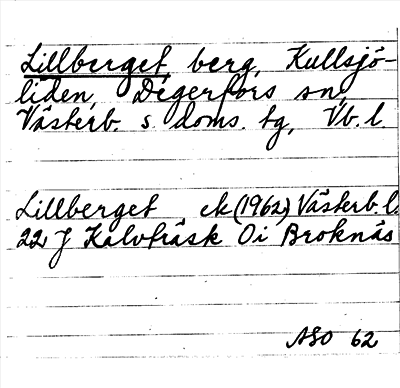 Lillberget, berg, Kullsjö-
liden, Degerfors sn,
Västerb. s. doms. tg, Vb. l.
Lillberget ek (1962) Västerb. l.
22 J Kalvträsk Oi Broknäs
ASO 62